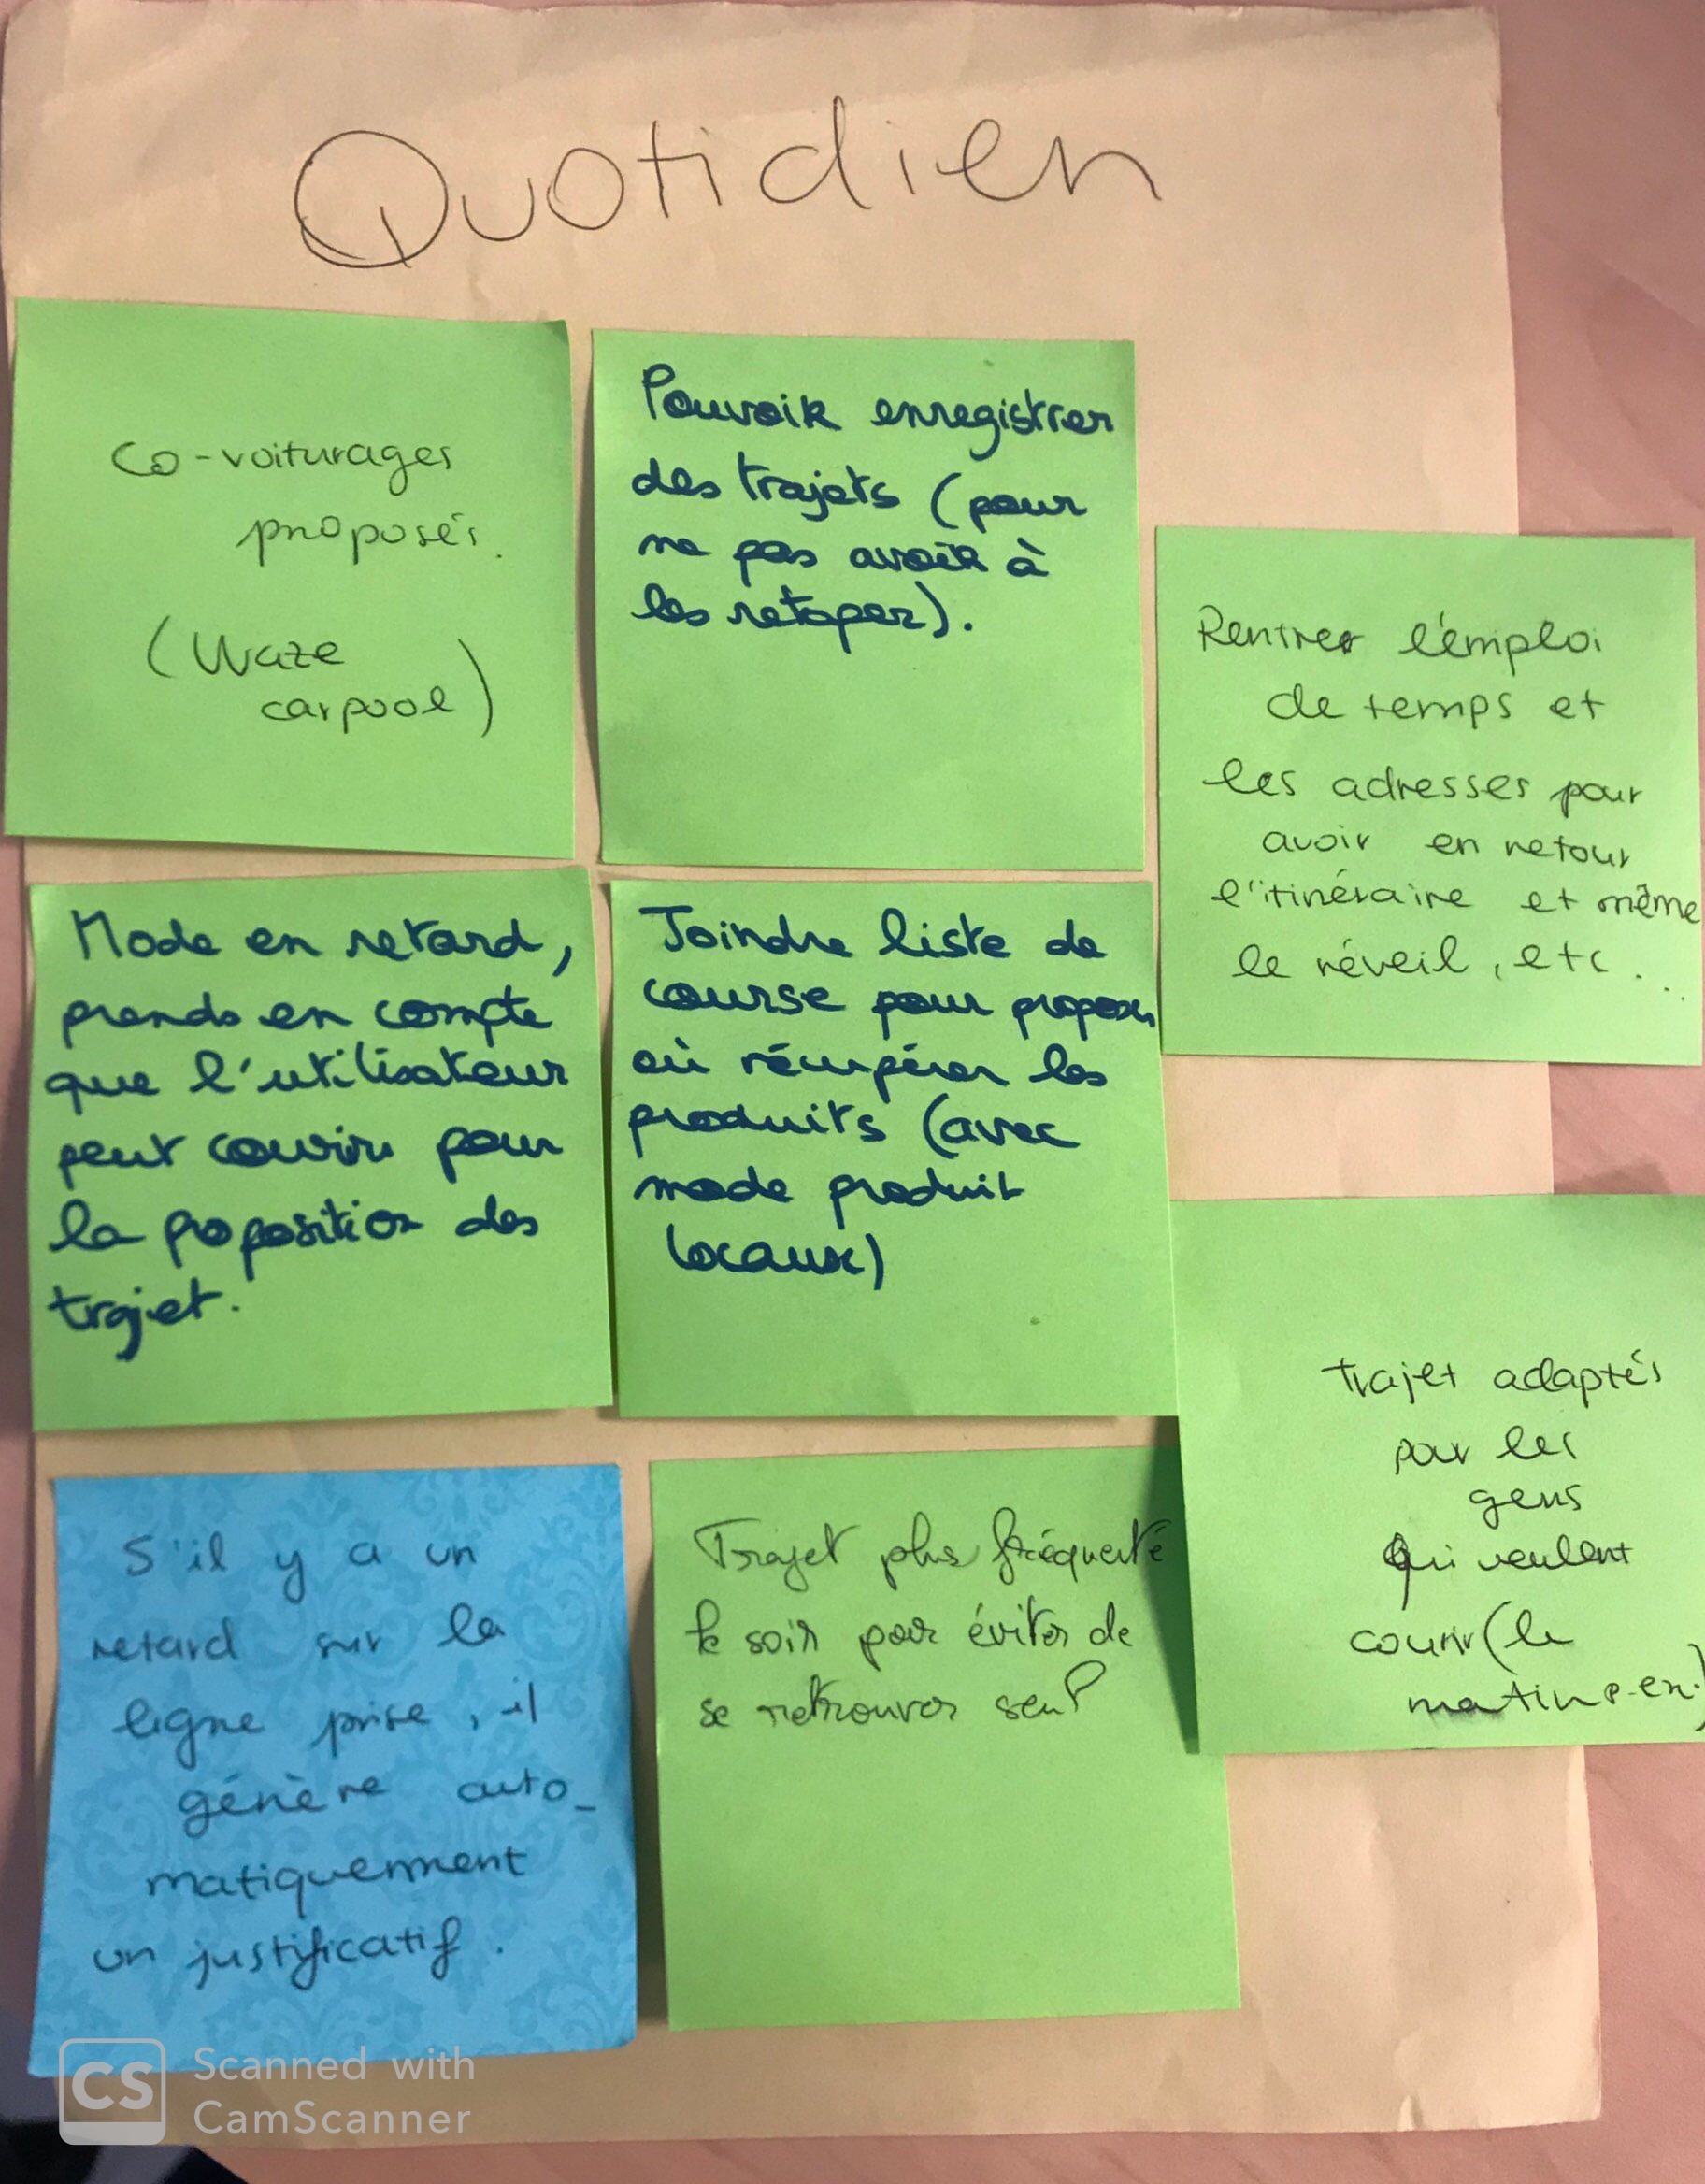 Quotidien
Co-voiturages
proposés.
(Waze
carpool)
Pouvoir enregistrer
des trajets (pour
ne pas avoir à
les retaper).
Rentrer l'emploi
de temps et
les adresses pour
avoir en retour
l'itinéraire et même
le réveil, etc...
Mode en retard,
prends en compte
que l'utilisateur
peut courir pour
la proposition des
trajet.
Joindre liste de
course pour proposer
où récupérer les
produits (avec
mode produit
locaux)
Trajet adaptés
pour les
gens
Qui veulent
courir (le
matin p.ex.)
S'il y a un
retard sur la
ligne prise, il
génère auto-
matiquement
un justificatif.
Trajet plus fréquenté
le soir pour éviter de
se retrouver seul
CS Scanned with
CamScanner